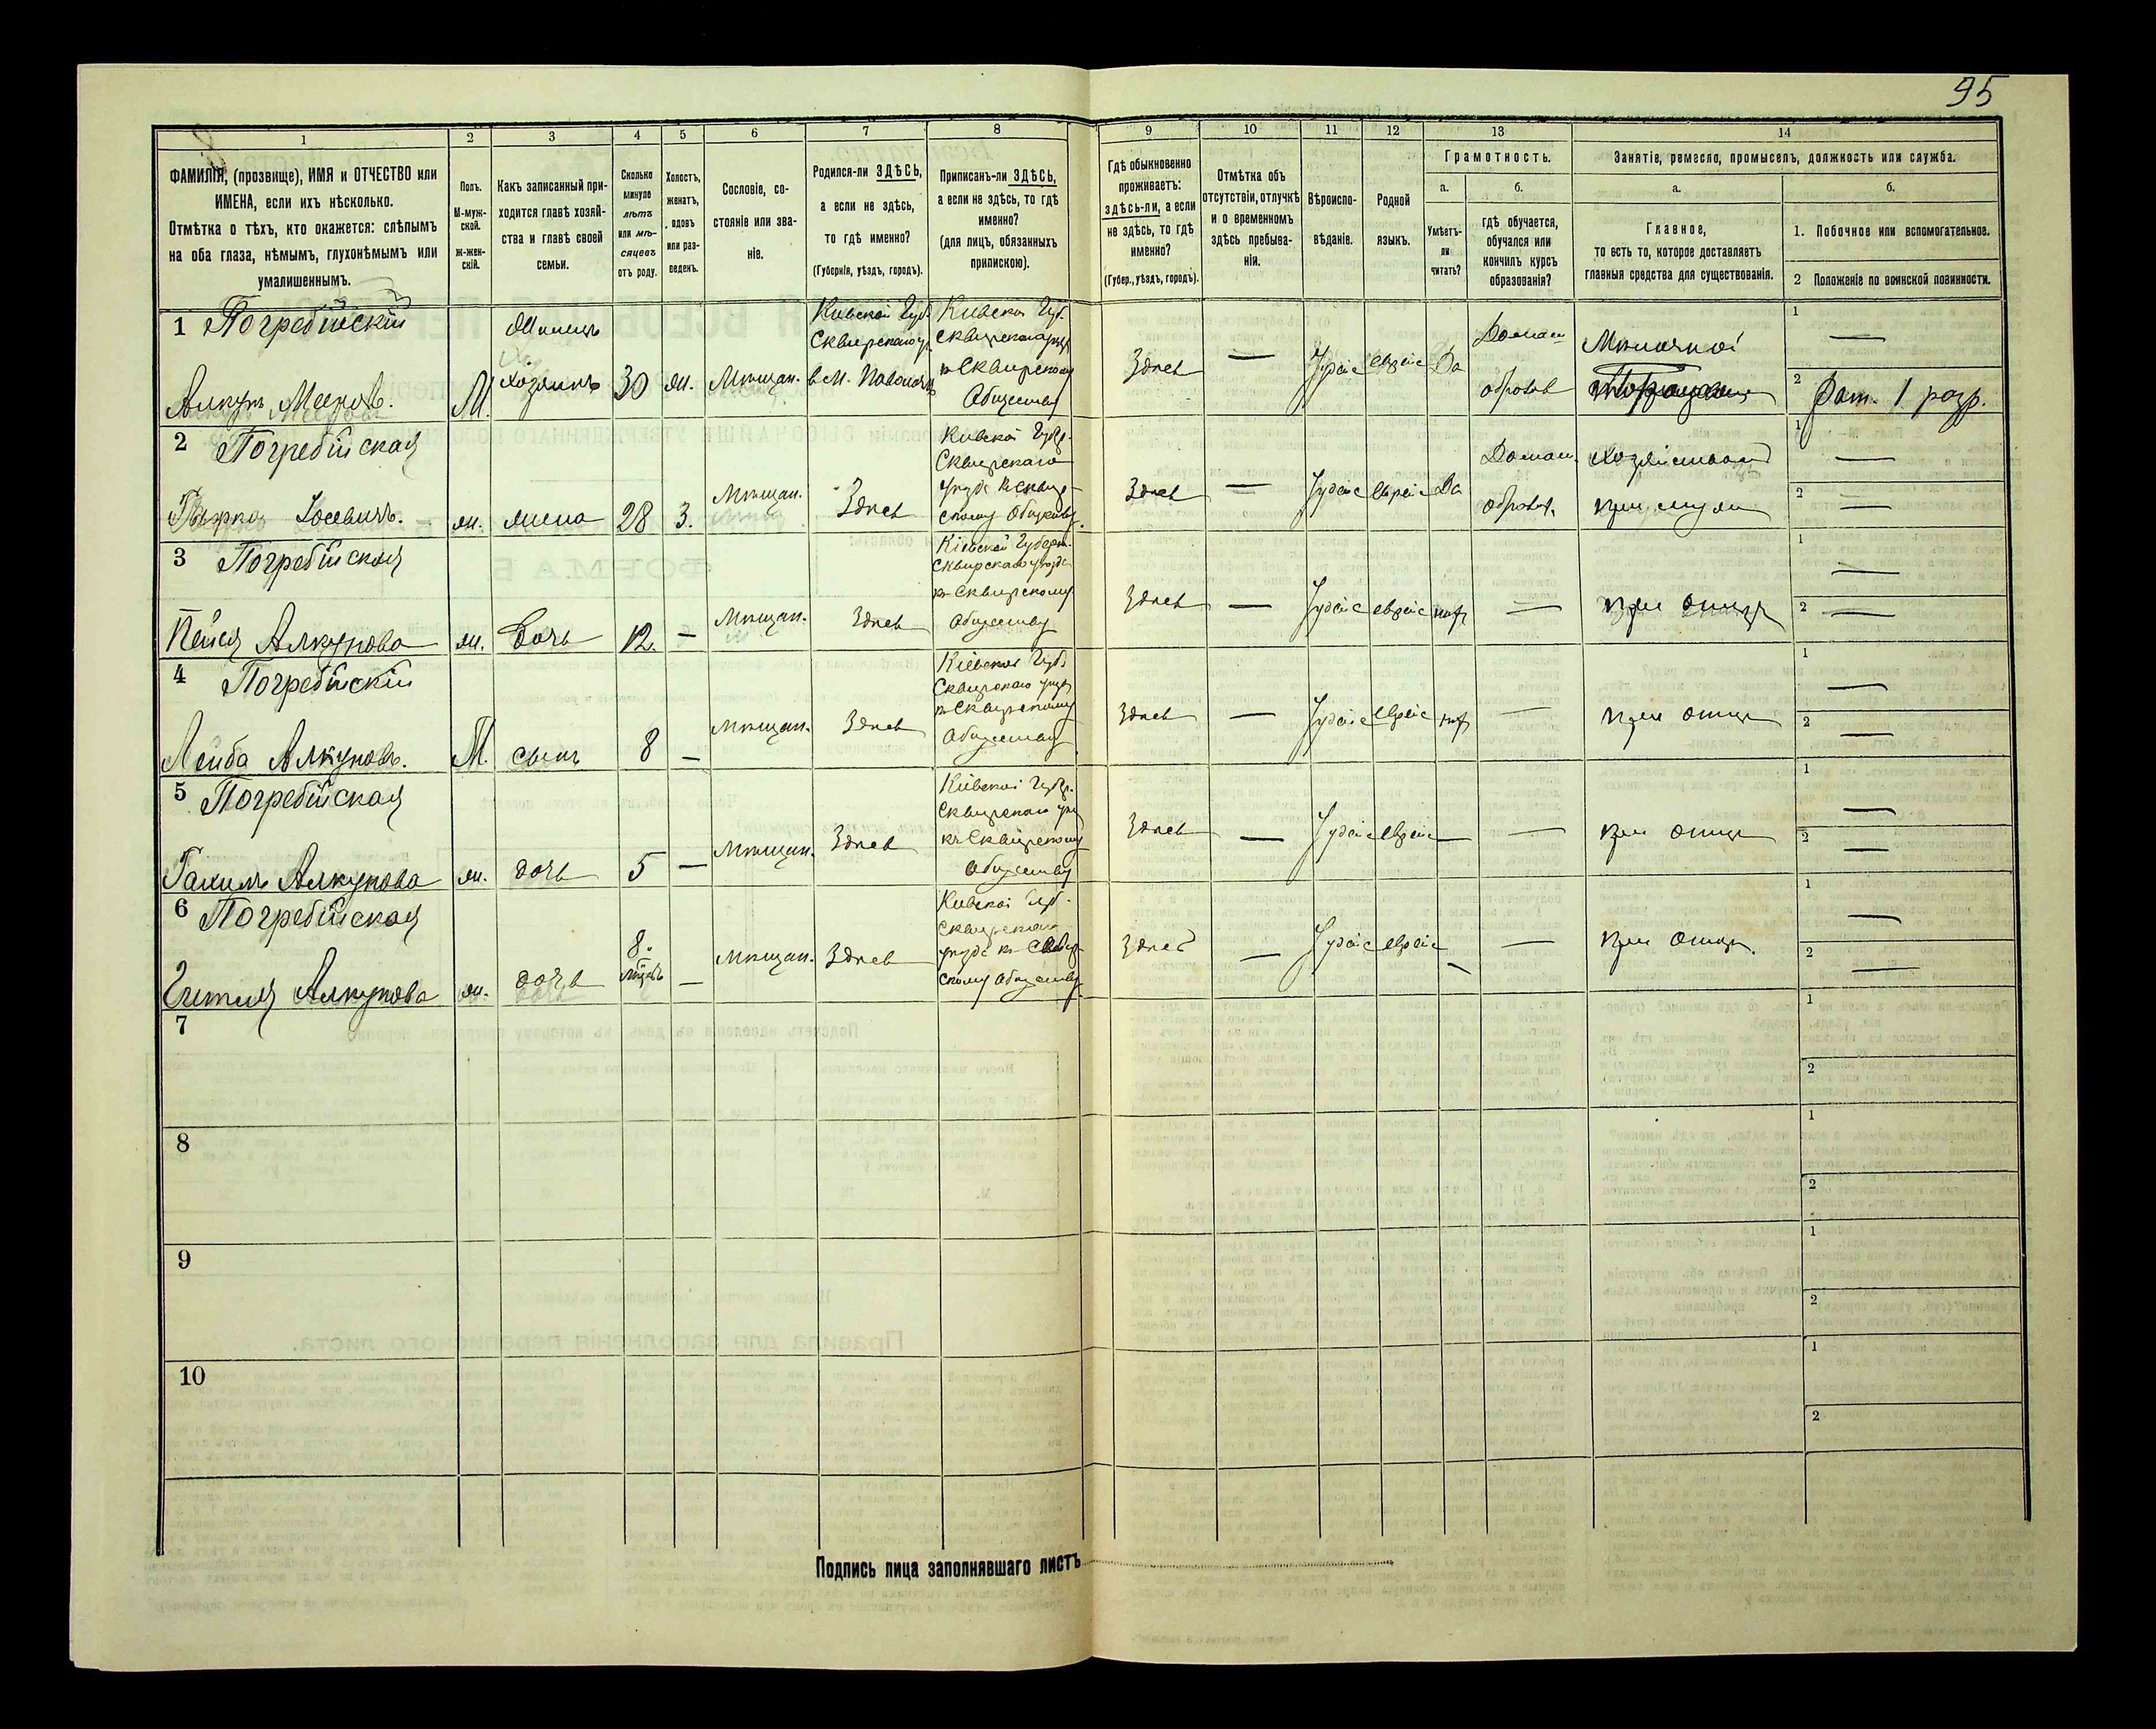 95
1
2
3
4
5
6
7
8
9
10
11
12
13
14
ФАМИЛІЯ, (прозвище), ИМЯ и ОТЧЕСТВО или
ИМЕНА, если ихъ нѣсколько.
Отмѣтка о тѣхъ, кто окажется: слѣпымъ
на оба глаза, нѣмымъ, глухонѣмымъ или
умалишеннымъ.
Полъ.
М-муж-
ской.
ж-жен-
скій.
Какъ записанный при-
ходится главѣ хозяй-
ства и главѣ своей
семьи.
Сколько
минуло
лѣтъ
или мѣ-
сяцевъ
отъ роду.
Холостъ,
женатъ,
вдовъ
или раз-
веденъ.
Сословіе, со-
стояніе или зва-
ніе.
Родился-ли ЗДѢСЬ,
а если не здѣсь,
то гдѣ именно?
(Губернія, уѣздъ, городъ).
Приписанъ-ли ЗДѢСЬ,
а если не здѣсь, то гдѣ
именно?
(для лицъ, обязанныхъ
припискою).
Гдѣ обыкновенно
проживаетъ:
здѣсь-ли, а если
не здѣсь, то гдѣ
именно?
(Губер., уѣздъ, городъ).
Отмѣтка объ
отсутствіи, отлучкѣ
и о временномъ
здѣсь пребыва-
ніи.
Вѣроиспо-
вѣданіе.
Родной
языкъ.
Грамотность.
а.
Умѣетъ-
ли
читать?
б.
гдѣ обучается,
обучался или
кончилъ курсъ
образованія?
Занятіе, ремесло, промыселъ, должность или служба.
а.
Главное,
то есть то, которое доставляетъ
главныя средства для существованія.
б.
1. Побочное или вспомогательное.
2 Положеніе по воинской повинности.
1 Погребійскій
М.
хозяинъ
30
ж.
Мѣщан.
Кіевской Губ.
Сквирскаго у.
Кіевской Губ.
къ Сквирскому
Обществу
Здѣсь
—
Іудейс
еврейс
Да
Домаш
образов
1 —
2 Рат. 1 разр.
2 Погребійская
ж.
жена
28
З.
Мѣщан.
Здѣсь
Кіевской Губер.
Сквирскаго
скому Обществу
Здѣсь
—
Іудейс
еврейс
Да
Домаш.
образов.
при мужѣ
1 —
2 —
3 Погребійская
Пейся Алкунова
ж.
дочь
12.
—
Мѣщан.
Здѣсь
Кіевской Губерн.
Сквирскаго уѣзда
къ Сквирскому
Обществу
Здѣсь
—
Іудейс
еврейс
нѣтъ
—
при отцѣ
1 —
2 —
4 Погребійскій
Лейба Алкуновъ.
М.
сынъ
8
—
Мѣщан.
Здѣсь
Кіевской Губ.
Сквирскаго уѣзда
къ Сквирскому
Обществу
Здѣсь
—
Іудейс
еврейс
нѣтъ
—
при отцѣ
1 —
2 —
5 Погребійская
ж.
дочь
5
—
Мѣщан.
Здѣсь
Кіевской Губер.
Сквирскаго уѣз
къ Сквирскому
Обществу
Здѣсь
—
Іудейс
еврейс
—
—
при отцѣ
1 —
2 —
6 Погребійская
ж.
дочь
8.
мѣсяц.
—
Мѣщан.
Здѣсь
Кіевской Губ.
Сквирскаго
скому Обществу
Здѣсь
—
Іудейс
еврейс
—
—
при отцѣ.
1 —
2 —
7
1
2
8
1
2
9
1
2
10
1
2
Подпись лица заполнявшаго листъ